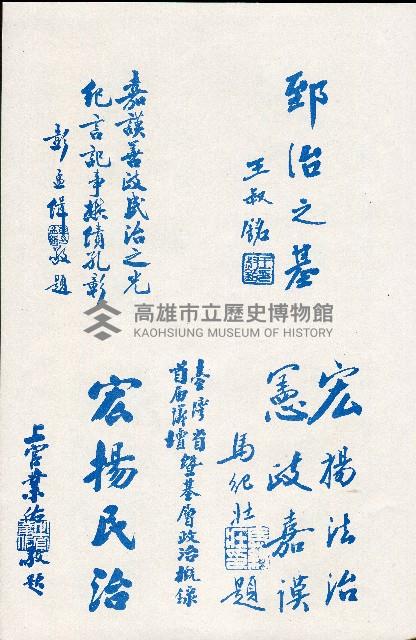 郅治之基
王叔銘
嘉謨善政民治之光
紀言記事猷績孔彰
彭孟緝敬題
高雄市立歷史博物館
KAOHSIUNG MUSEUM OF HISTORY
宏揚法治
憲政嘉謨
馬紀壯題
臺灣省
首屆議壇暨基層政治概錄
宏揚民治
上官業佑敬題